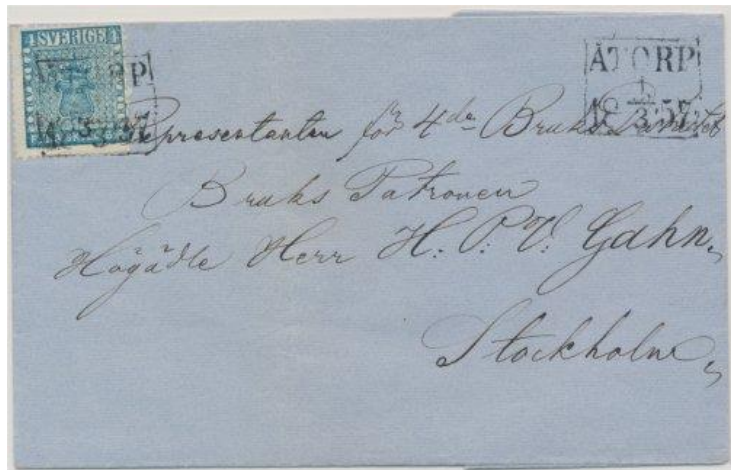 4 SVERIGE 4
ÅTORP
1
18 3 57
ÅTORP
1
18 3 57
Representanten för 4de Bruks
Bruks Patronen
Högädle Herr H. P. V. Gahn,
Stockholm,